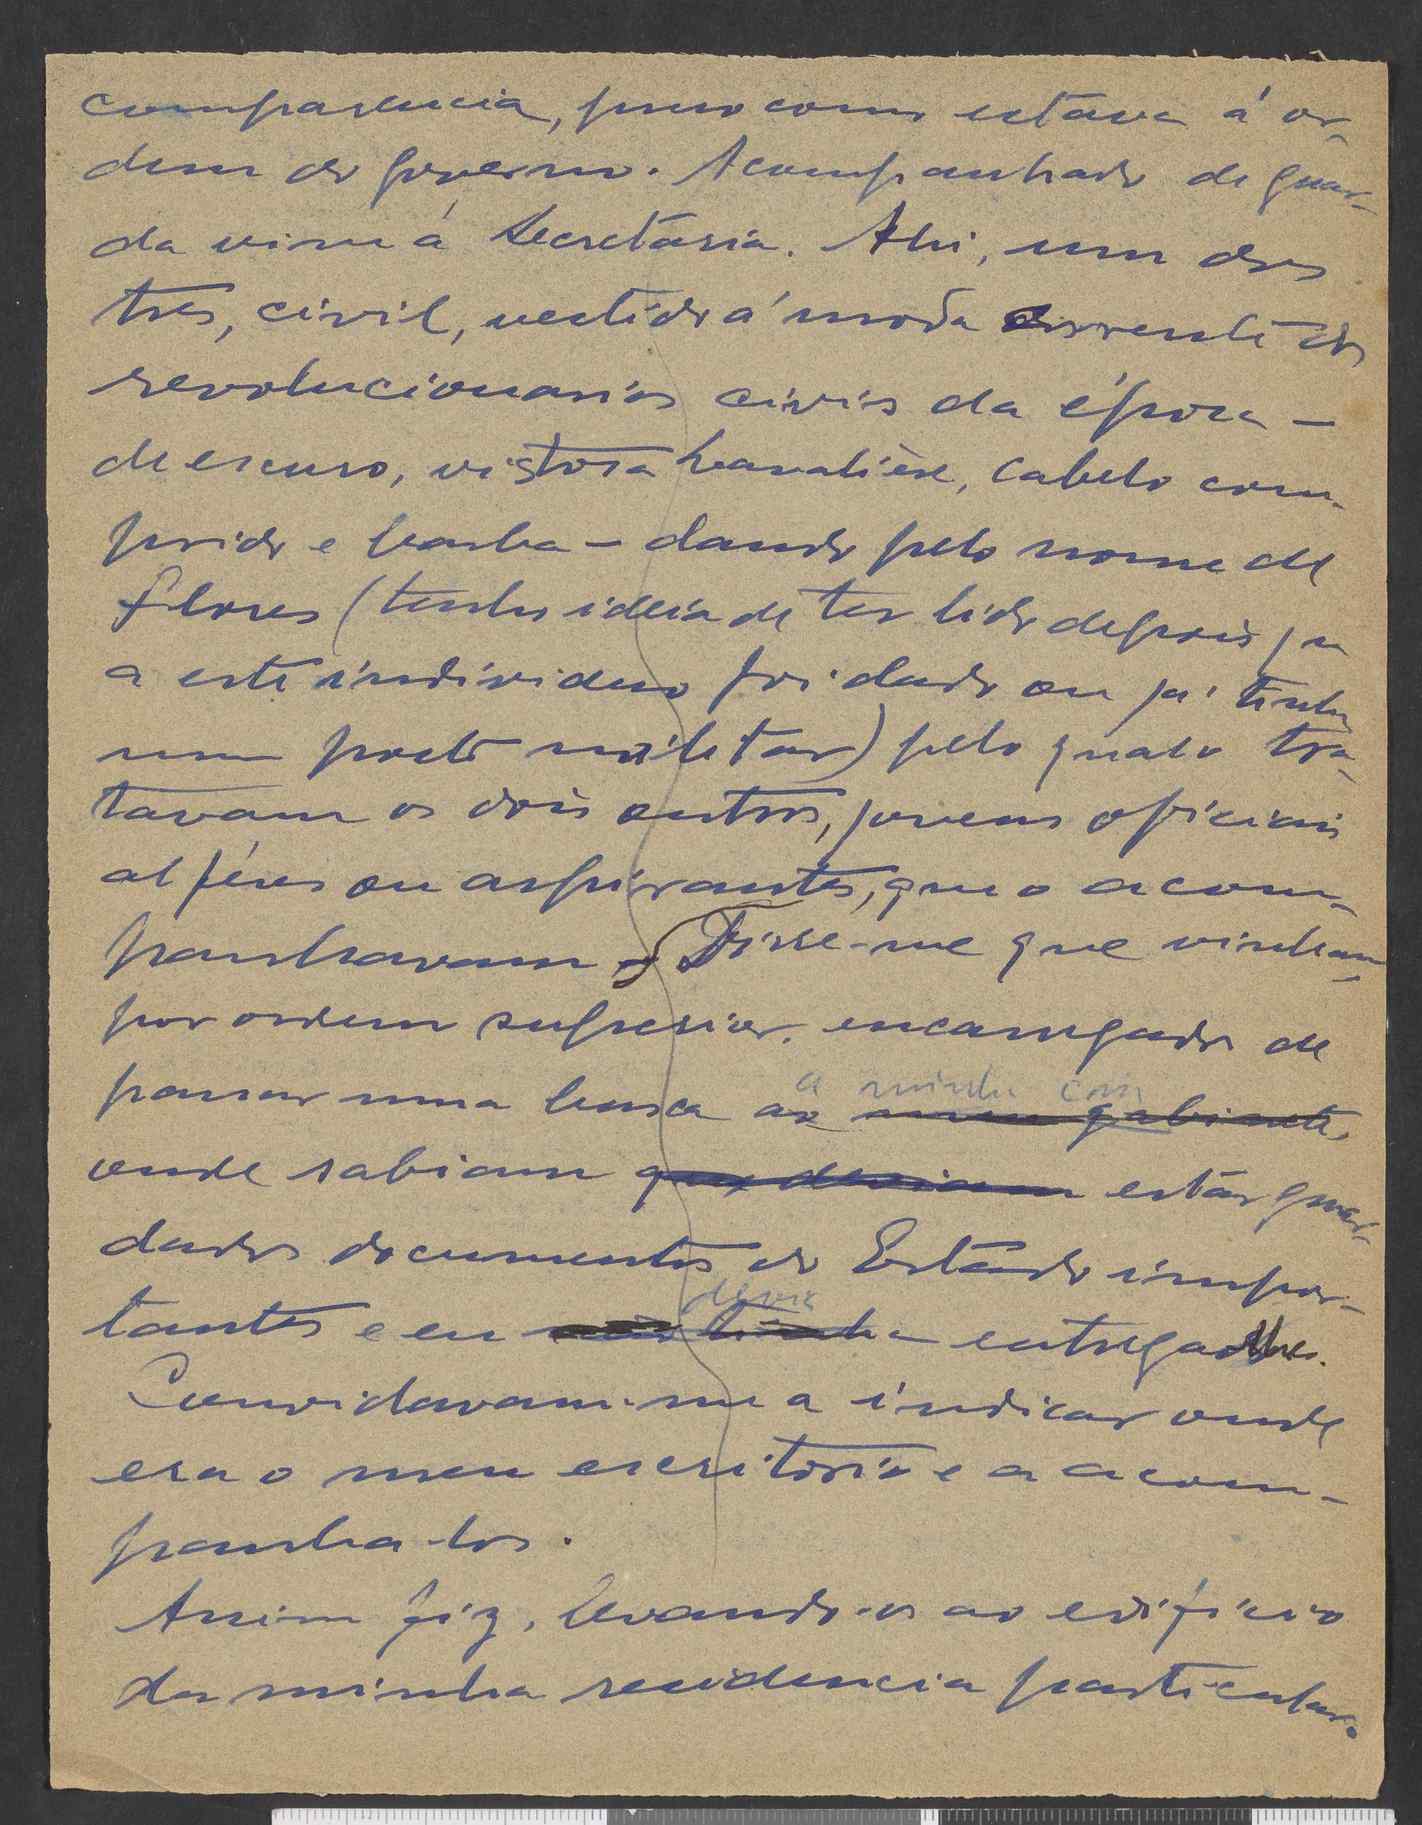 comparencia, preso como estava á or-
dem do governo. Acompanhado de guar-
da vim á Secretária. Ahi, um dos
tres, civil, vestido á moda corrente dos
revolucionarios civis da época -
de escuro, vistosa lavalière, cabelo com-
prido e barba - dando pelo nome de
Flores (tenho ideia de ter lido depois que
a este individuo foi dado ou já tinha
um posto militar) pelo qual o tra-
tavam os dois outros, jovens oficiais
alféres ou aspirantes, que o acom-
panhavam. Disse-me que vinham,
por ordem superior, encarregados de
passar uma busca ao meu gabinete,
a minha casa
onde sabiam que deviam estar guar-
dados documentos do Estado impor-
tantes e eu não tinha entregado-lhes.
devia
Convidavam-me a indicar onde
era o meu escritorio e a acom-
panha-los.
Assim fiz, levando-os ao edifício
da minha residencia particular.